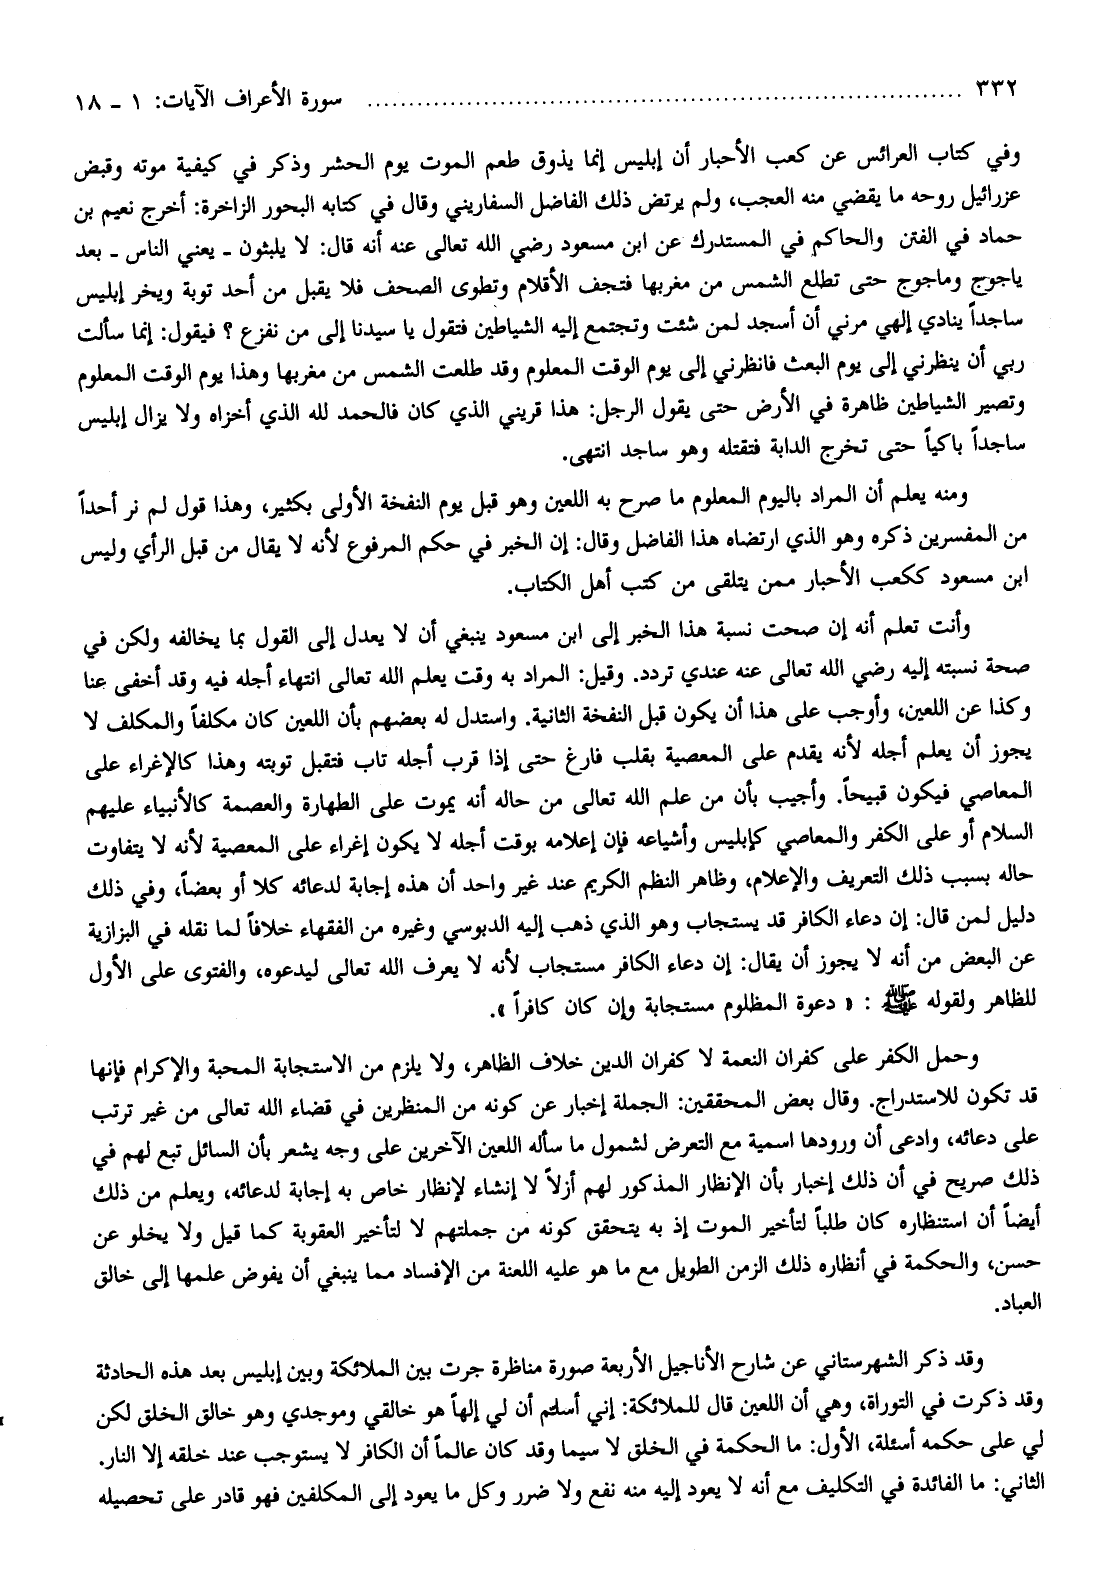 ٣٣٢ .................................................................... سورة الأعراف الآيات: ١ - ١٨
وفي كتاب العرائس عن كعب الأحبار أن إبليس إنما يذوق طعم الموت يوم الحشر وذكر في كيفية موته وقبض
عزرائيل روحه ما يقضي منه العجب، ولم يرتض ذلك الفاضل السفاريني وقال في كتابه البحور الزاخرة: أخرج نعيم بن
حماد في الفتن والحاكم في المستدرك عن ابن مسعود رضي الله تعالى عنه أنه قال: لا يلبثون ـ يعني الناس ـ بعد
ياجوج وماجوج حتى تطلع الشمس من مغربها فتجف الأقلام وتطوى الصحف فلا يقبل من أحد توبة ويخر إبليس
ساجداً ينادي إلهي مرني أن أسجد لمن شئت وتجتمع إليه الشياطين فتقول يا سيدنا إلى من نفزع ؟ فيقول: إنما سألت
ربي أن ينظرني إلى يوم البعث فانظرني إلى يوم الوقت المعلوم وقد طلعت الشمس من مغربها وهذا يوم الوقت المعلوم
وتصير الشياطين ظاهرة في الأرض حتى يقول الرجل: هذا قريني الذي كان فالحمد لله الذي أخزاه ولا يزال إبليس
ساجداً باكياً حتى تخرج الدابة فتقتله وهو ساجد انتهى.
ومنه يعلم أن المراد باليوم المعلوم ما صرح به اللعين وهو قبل يوم النفخة الأولى بكثير، وهذا قول لم نر أحداً
من المفسرين ذكره وهو الذي ارتضاه هذا الفاضل وقال: إن الخبر في حكم المرفوع لأنه لا يقال من قبل الرأي وليس
ابن مسعود ككعب الأحبار ممن يتلقى من كتب أهل الكتاب.
وأنت تعلم أنه إن صحت نسبة هذا الخبر إلى ابن مسعود ينبغي أن لا يعدل إلى القول بما يخالفه ولكن في
صحة نسبته إليه رضي الله تعالى عنه عندي تردد. وقيل: المراد به وقت يعلم الله تعالى انتهاء أجله فيه وقد أخفى عنا
وكذا عن اللعين، وأوجب على هذا أن يكون قبل النفخة الثانية. واستدل له بعضهم بأن اللعين كان مكلفاً والمكلف لا
يجوز أن يعلم أجله لأنه يقدم على المعصية بقلب فارغ حتى إذا قرب أجله تاب فتقبل توبته وهذا كالإغراء على
المعاصي فيكون قبيحاً. وأجيب بأن من علم الله تعالى من حاله أنه يموت على الطهارة والعصمة كالأنبياء عليهم
السلام أو على الكفر والمعاصي كإبليس وأشياعه فإن إعلامه بوقت أجله لا يكون إغراء على المعصية لأنه لا يتفاوت
حاله بسبب ذلك التعريف والإعلام، وظاهر النظم الكريم عند غير واحد أن هذه إجابة لدعائه كلا أو بعضاً، وفي ذلك
دليل لمن قال: إن دعاء الكافر قد يستجاب وهو الذي ذهب إليه الدبوسي وغيره من الفقهاء خلافاً لما نقله في البزازية
عن البعض من أنه لا يجوز أن يقال: إن دعاء الكافر مستجاب لأنه لا يعرف الله تعالى ليدعوه، والفتوى على الأول
للظاهر ولقوله ﷺ : « دعوة المظلوم مستجابة وإن كان كافراً ».
وحمل الكفر على كفران النعمة لا كفران الدين خلاف الظاهر، ولا يلزم من الاستجابة المحبة والإكرام فإنها
قد تكون للاستدراج. وقال بعض المحققين: الجملة إخبار عن كونه من المنظرين في قضاء الله تعالى من غير ترتب
على دعائه، وادعى أن ورودها اسمية مع التعرض لشمول ما سأله اللعين الآخرين على وجه يشعر بأن السائل تبع لهم في
ذلك صريح في أن ذلك إخبار بأن الإنظار المذكور لهم أزلاً لا إنشاء لإنظار خاص به إجابة لدعائه، ويعلم من ذلك
أيضاً أن استنظاره كان طلباً لتأخير الموت إذ به يتحقق كونه من جملتهم لا لتأخير العقوبة كما قيل ولا يخلو عن
حسن، والحكمة في أنظاره ذلك الزمن الطويل مع ما هو عليه اللعنة من الإفساد مما ينبغي أن يفوض علمها إلى خالق
العباد.
وقد ذكر الشهرستاني عن شارح الأناجيل الأربعة صورة مناظرة جرت بين الملائكة وبين إبليس بعد هذه الحادثة
وقد ذكرت في التوراة، وهي أن اللعين قال للملائكة: إني أسلم أن لي إلهاً هو خالقي وموجدي وهو خالق الخلق لكن
لي على حكمه أسئلة، الأول: ما الحكمة في الخلق لا سيما وقد كان عالماً أن الكافر لا يستوجب عند خلقه إلا النار.
الثاني: ما الفائدة في التكليف مع أنه لا يعود إليه منه نفع ولا ضرر وكل ما يعود إلى المكلفين فهو قادر على تحصيله